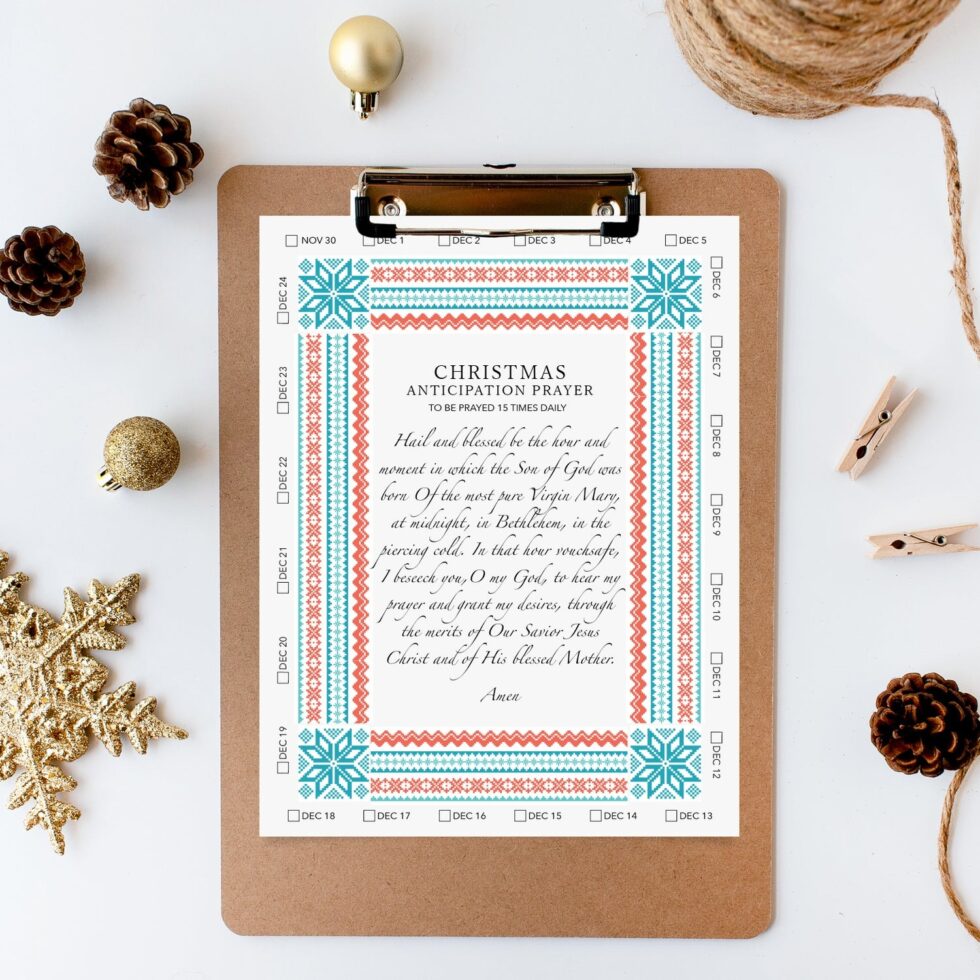 NOV 30
DEC 1
DEC 2
DEC 3
DEC 4
DEC 5
DEC 6
DEC 7
DEC 8
DEC 9
DEC 10
DEC 11
DEC 12
DEC 13
DEC 14
DEC 15
DEC 16
DEC 17
DEC 18
DEC 19
DEC 20
DEC 21
DEC 22
DEC 23
DEC 24
CHRISTMAS
ANTICIPATION PRAYER
TO BE PRAYED 15 TIMES DAILY
Hail and blessed be the hour and
moment in which the Son of God was
born Of the most pure Virgin Mary,
at midnight, in Bethlehem, in the
piercing cold. In that hour vouchsafe,
I beseech you, O my God, to hear my
prayer and grant my desires, through
the merits of Our Savior Jesus
Christ and of His blessed Mother.
Amen